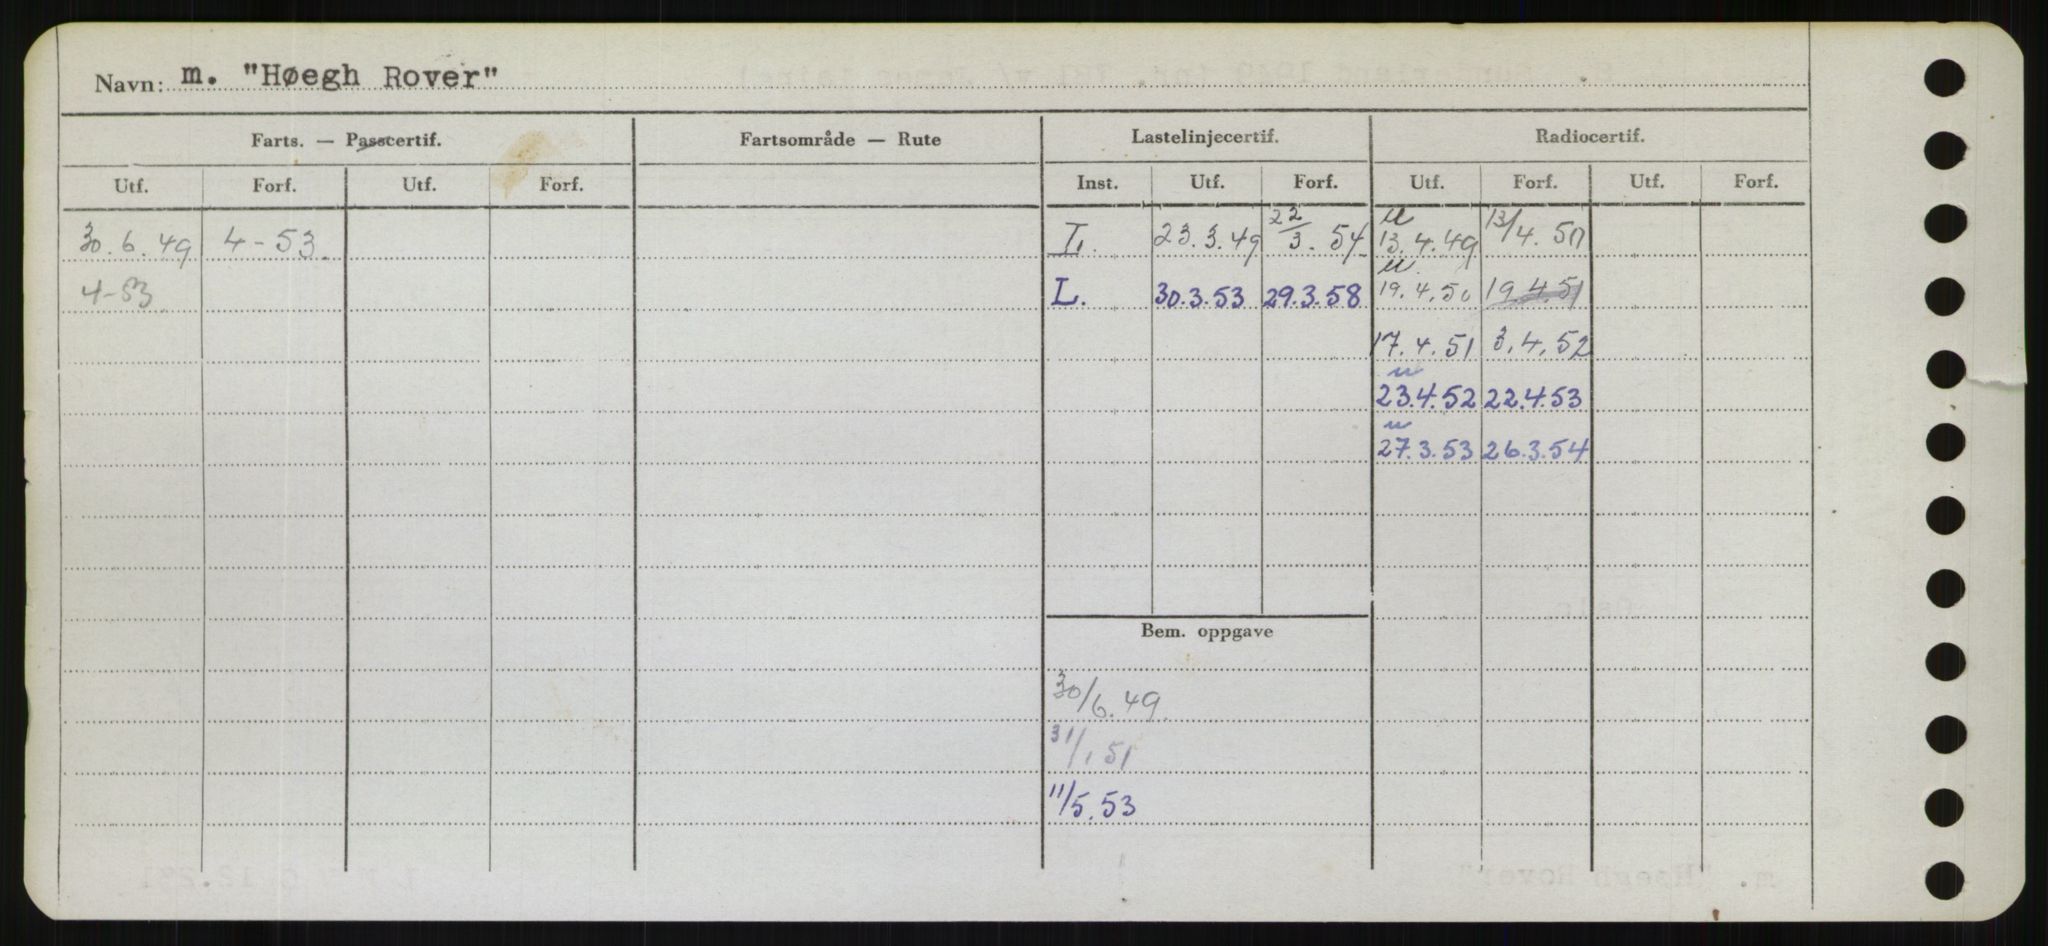 Navn: m. "Høegh Rover"
Farts. — Passcertif. Fartsområde — Rute Lastelinjecertif. Radiocertif.
Utf. Forf. Utf. Forf. Inst. Utf. Forf. Utf. Forf. Utf. Forf.
u
30.6.49 4-53. L. 23.3.49 22/3.54 13.4.49 13/4.50
u
4-53 L. 30.3.53 29.3.58 19.4.50 19.4.51
17.4.51 3.4.52
u
23.4.52 22.4.53
u
27.3.53 26.3.54
Bem. oppgave
30/6.49
31/1 51
11/5.53